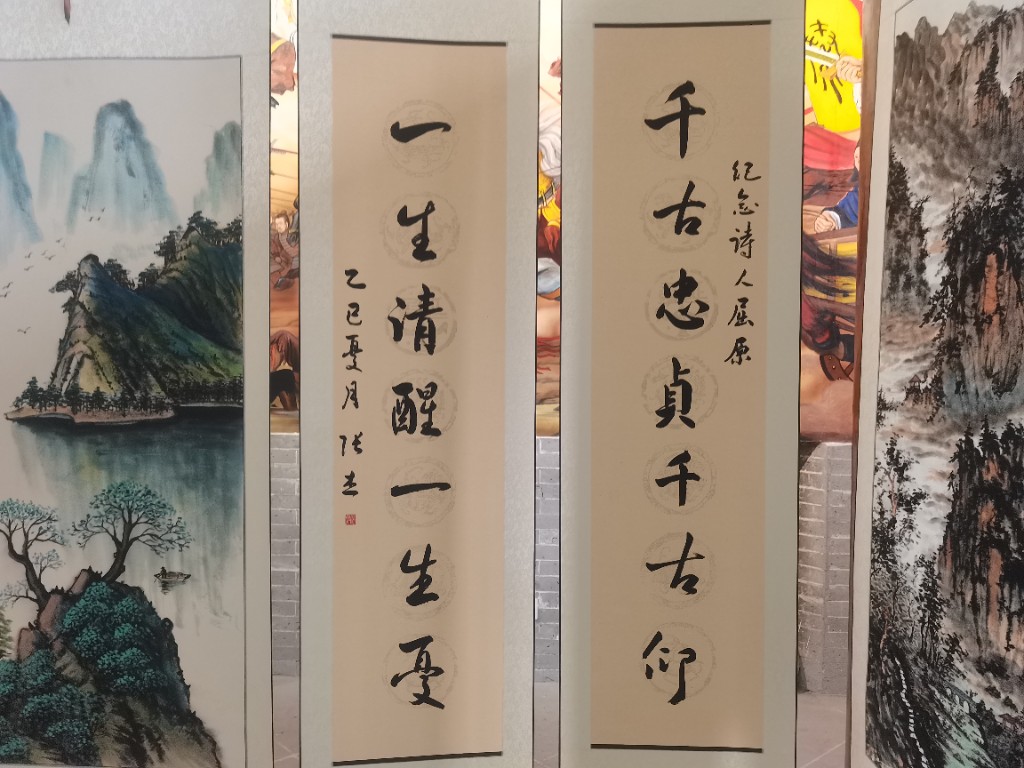 纪念詩人屈原
千古忠貞千古仰
一生清醒一生憂
乙巳夏月